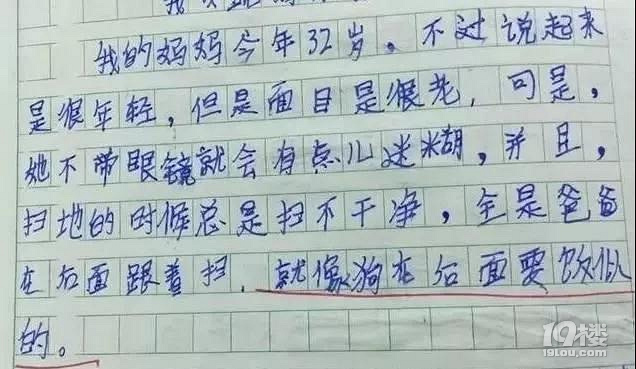 我的妈妈今年32岁。不过说起来
是很年轻，但是面目是很老，可是，
她不带眼镜就会有点儿迷糊，并且，
扫地的时候总是扫不干净，全是爸爸
在后面跟着扫，就像狗在后面要饭似
的。
19楼
19lou.com